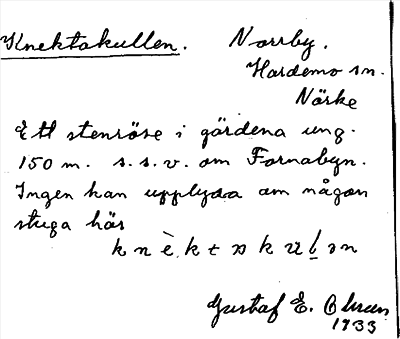 Knektakullen. Norrby.
Hardemo sn.
Närke
Ett stenröse i gärdena ung.
150 m. s.s.v. om Fornabyn.
Ingen kan upplysa om någon
stuga här
Gustaf E. Olsson
1933